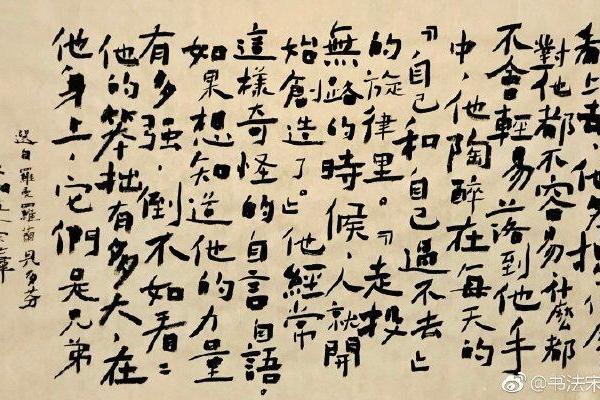 看上去,他
對他都不容易什麽都
不會輕易落到他手
中,他陶醉在每天的
『自己和自己過不去』
的旋律里。『走投
無路的時候,人就開
始創造了。』他經常
這樣奇怪的自言自語。
如果想知道他的力量
有多强,倒不如看々
他的笨拙有多大,在
他身上,它們是兄弟
選自羅曼羅蘭貝多芬
@书法宋